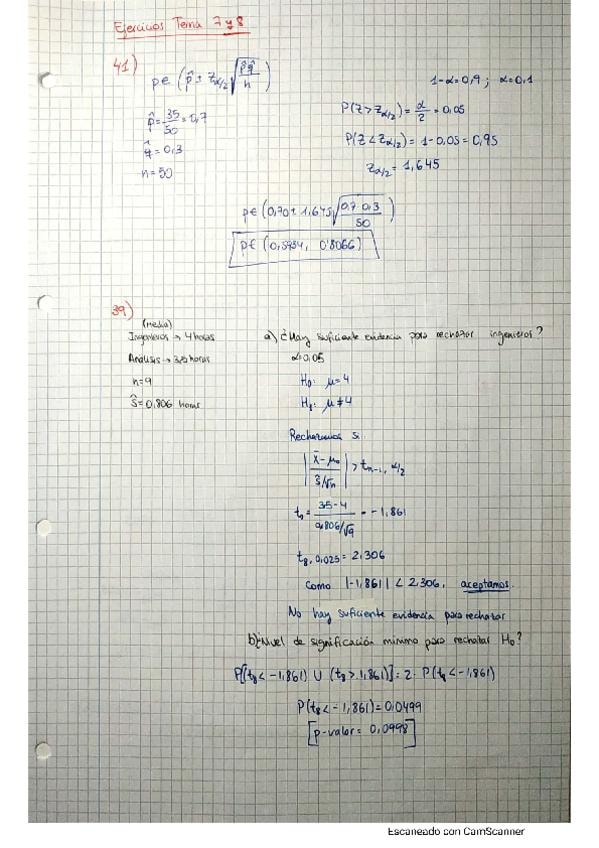 Ejercicios Tema 7 y 8
41)
p ∈ (p̂ ± z_{α/2} √(p̂q̂/n))
p̂ = 35/50 = 0,7
q̂ = 0,3
n = 50
1-α = 0,9 ; α = 0,1
P(Z > z_{α/2}) = α/2 = 0,05
P(Z < z_{α/2}) = 1-0,05 = 0,95
z_{α/2} = 1,645
p ∈ (0,70 ± 1,645 √(0,7·0,3/50))
p ∈ (0,5934, 0'8066)
39)
(media)
Ingenieros → 4 horas
Análisis → 3,5 horas
n = 9
Ŝ = 0,806 horas
a) ¿Hay suficiente evidencia para rechazar ingenieros?
α = 0,05
H₀: μ = 4
H₁: μ ≠ 4
Rechazamos si
|(x̄ - μ₀)/(ŝ/√n)| > t_{n-1, α/2}
t₀ = (3,5-4)/(0,806/√9) = -1,861
t_{8, 0,025} = 2,306
Como |-1,861| < 2,306, aceptamos.
No hay suficiente evidencia para rechazar
b) ¿Nivel de significación mínimo para rechazar H₀?
P[(t₈ < -1,861) ∪ (t₈ > 1,861)] = 2 · P(t₈ < -1,861)
P(t₈ < -1,861) = 0,0499
[p-valor = 0,0998]
Escaneado con CamScanner